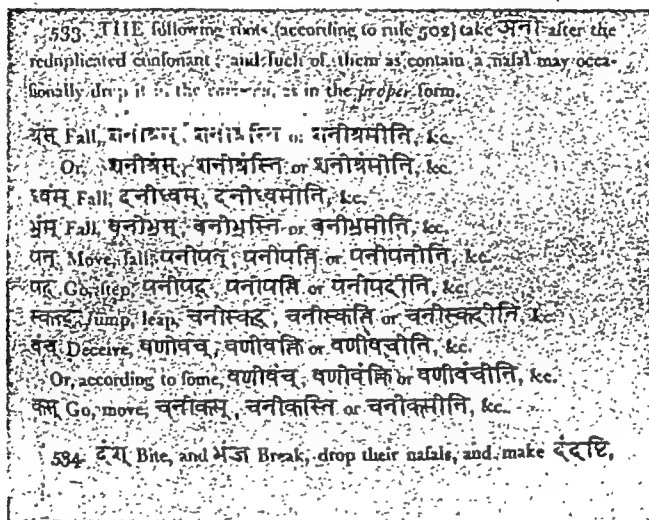 533. THE following roots (according to rule 502) take अनी after the
reduplicated consonant; and such of them as contain a nasal may occa-
sionally drop it in the common, as in the proper form.
Fall, शनीश्रस्ति or शनीश्रसीति, &c.
Or, शनीश्रंस्, शनीश्रंस्ति or शनीश्रंसीति, &c.
ध्वम् Fall, दनीध्वम्, दनीध्वसीति, &c.
भ्रंस् Fall, बनीभ्रस्, बनीभ्रस्ति or बनीभ्रसीति, &c.
पत् Move, fall, पनीपत्, पनीपत्ति or पनीपतीति, &c.
पद् Go, step, पनीपद्, पनीपत्ति or पनीपदीति, &c.
स्कन्द् Jump, leap, चनीस्कद्, चनीस्कत्ति or चनीस्कदीति, &c.
वंच् Deceive, वणीवच्, वणीवक्ति or वणीवचीति, &c.
Or, according to some, वणीवंच्, वणीवंक्ति or वणीवंचीति, &c.
कस् Go, move, चनीकस्, चनीकस्ति or चनीकसीति, &c.
534. दंश् Bite, and भंज Break, drop their nasals, and make दंदष्टि,